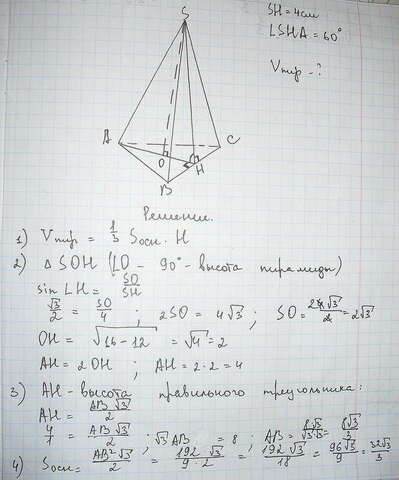 SH = 4см
∠SHA = 60°
Vпир - ?
S
A
C
O
H
B
Решение.
1) Vпир = 1/3 Sосн · H
2) Δ SOH (∠O - 90° - высота пирамиды)
sin ∠H = SO/SH
√3/2 = SO/4 ; 2SO = 4√3 ; SO = 2√3
OH = √16 - 12 = √4 = 2
AH = 2OH ; AH = 2·2 = 4
3) AH - высота правильного треугольника:
AH = AB√3/2
4/1 = AB√3/2 ; √3 AB = 8 ; AB = 8√3/√3√3 = 8√3/3
4) Sосн = AB²√3/2 = 192√3/9·2 = 192√3/18 = 96√3/9 = 32√3/3